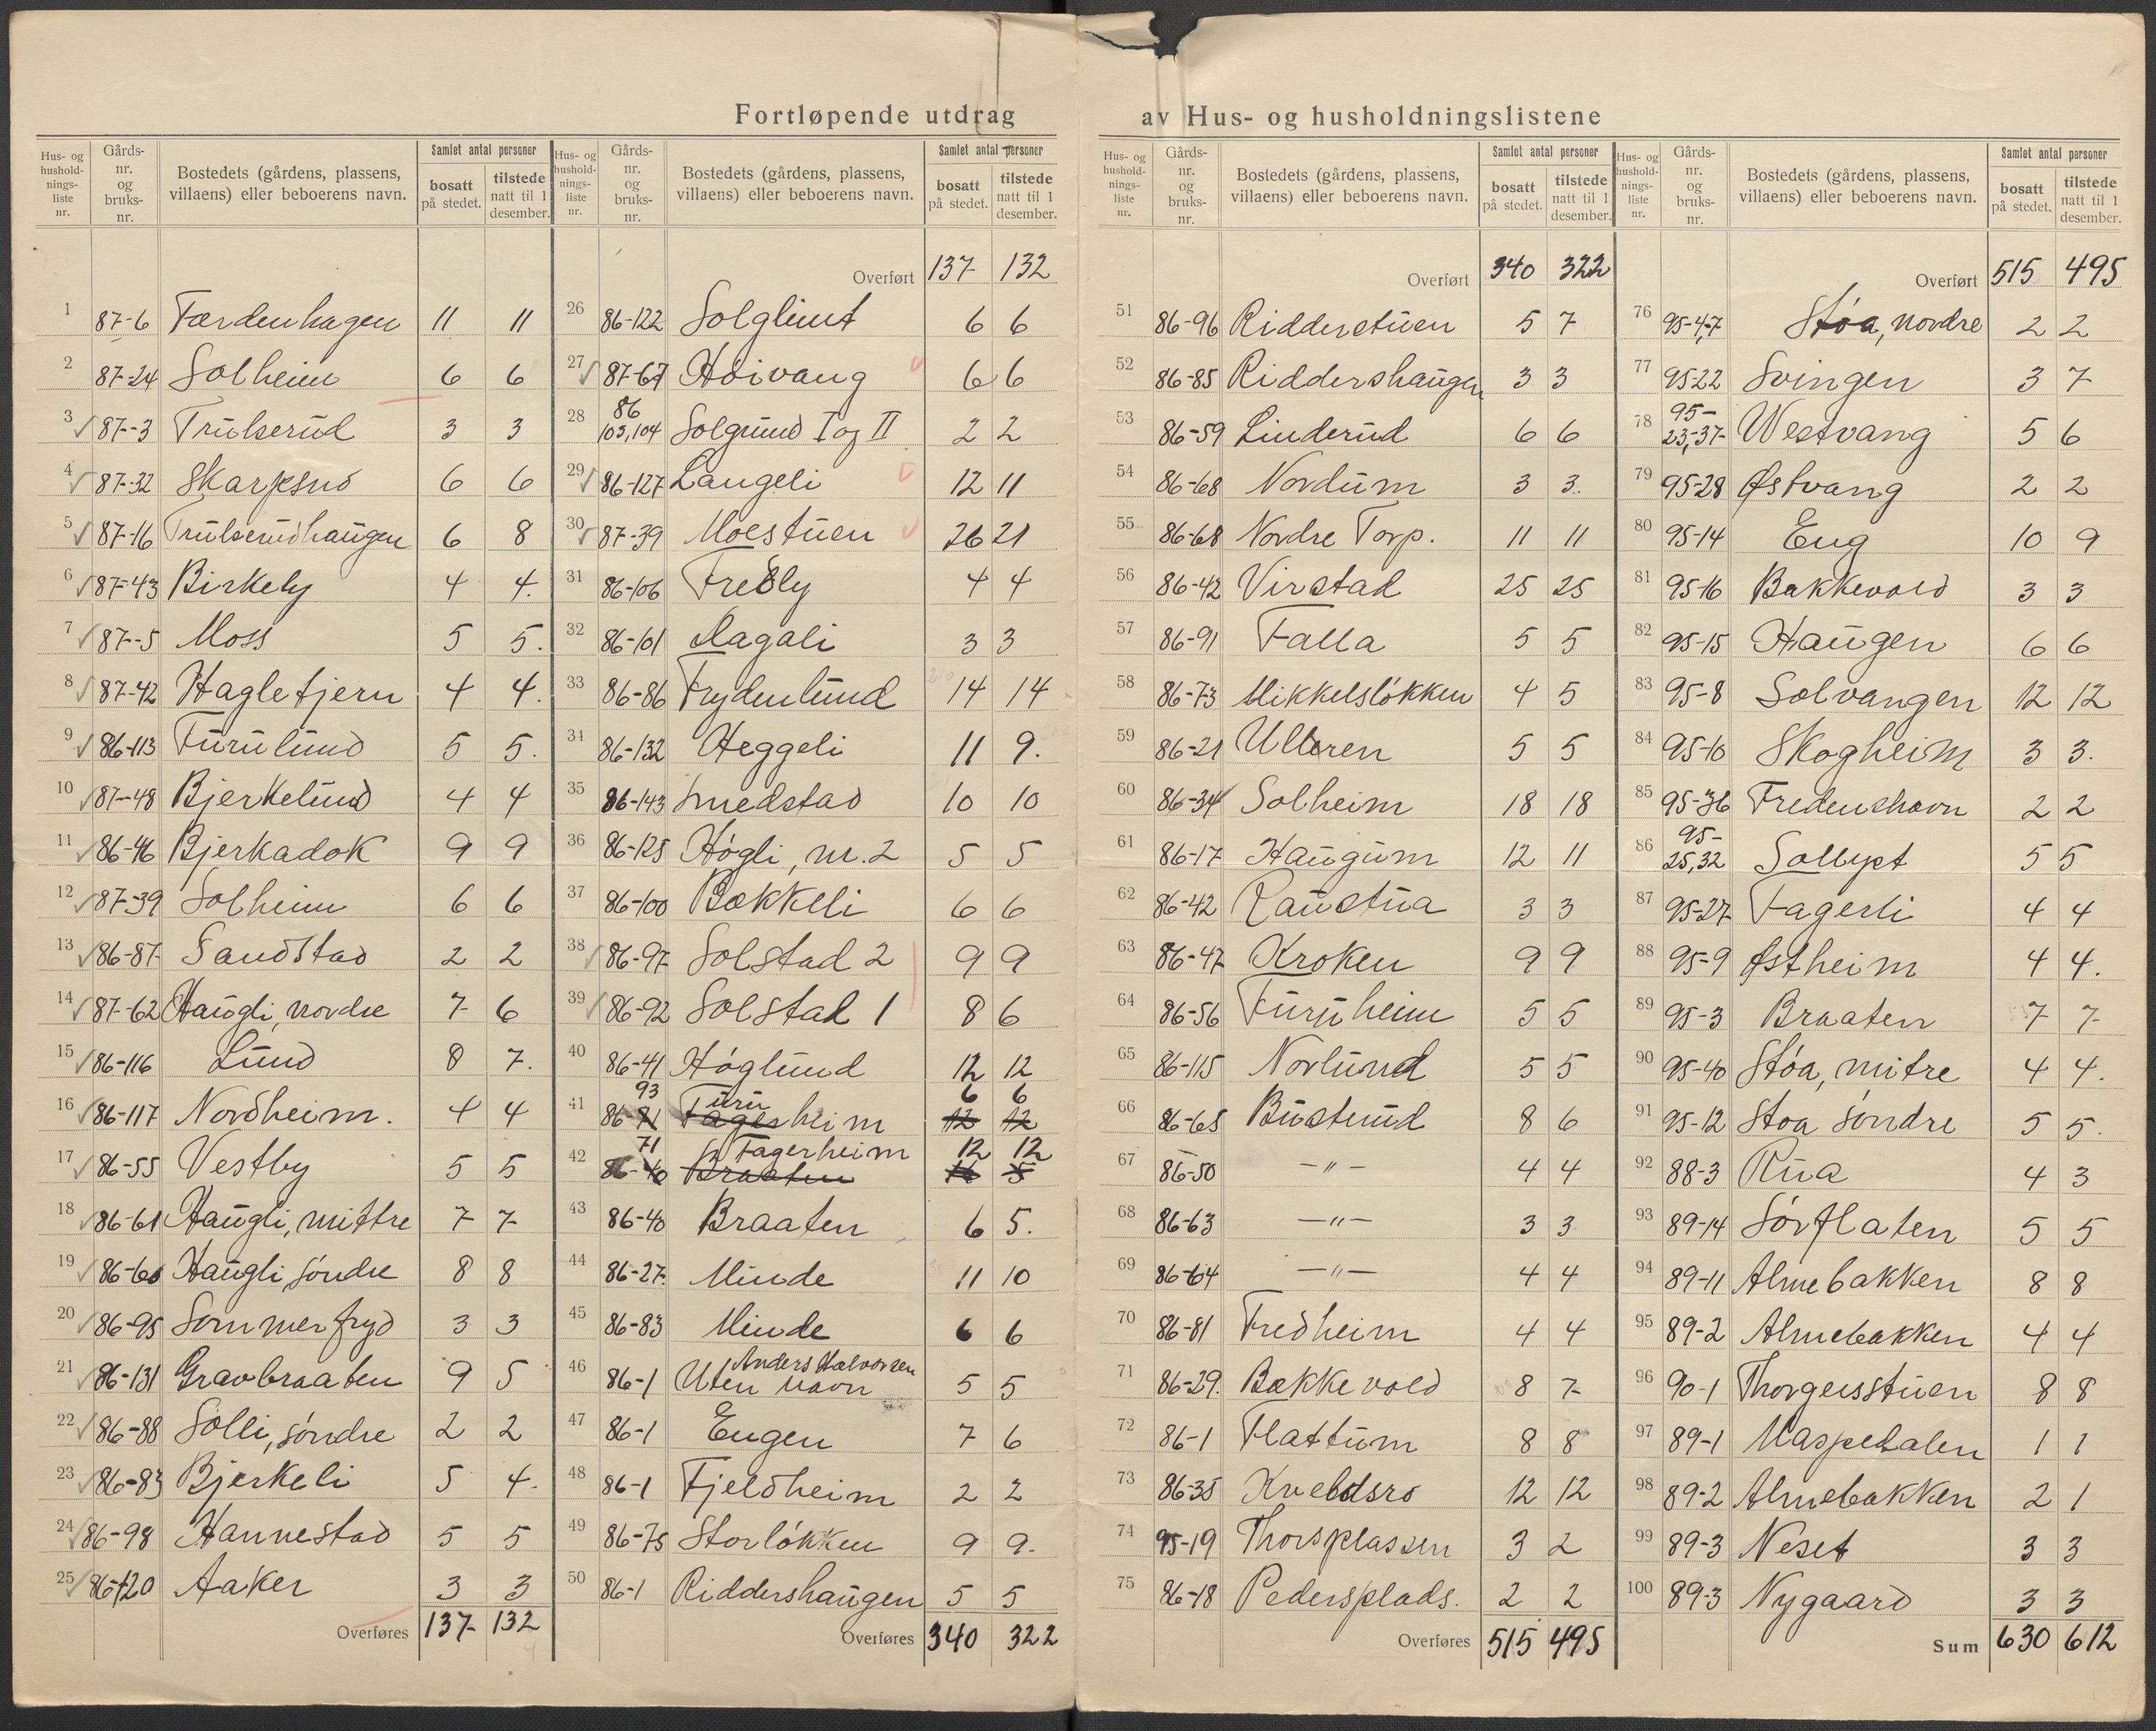 Fortløpende utdrag av Hus- og husholdningslistene
Hus- og hushold- nings- liste nr. Gårds- nr. og bruks- nr. Bostedets (gårdens, plassens, villaens) eller beboerens navn. Samlet antal personer bosatt på stedet. tilstede natt til 1 desember.
1 87-6 Færdenhagen 11 11
2 87-24 Solheim 6 6
3 87-3 Trulserud 3 3
4 87-32 Skarpsno 6 6
5 87-16 Trulserudhaugen 6 8
6 87-43 Birkely 4 4.
7 87-5 Moss 5 5.
8 87-42 Hagletjern 4 4.
9 86-113 Furulund 5 5.
10 87-48 Bjerkelund 4 4
11 86-46 Bjerkadok 9 9
12 87-39 Solheim 6 6
13 86-87 Sandstad 2 2
14 87-62 Haugli, nordre 7 6
15 86-116 Lund 8 7.
16 86-117 Nordheim. 4 4
17 86-55 Vestby 5 5
18 86-61 Haugli, mittre 7 7
19 86-60 Haugli, søndre 8 8
20 86-95 Sommerfryd 3 3
21 86-131 Gravbraaten 9 5
22 86-88 Solli, søndre 2 2
23 86-83 Bjerkeli 5 4.
24 86-98 Hannestad 5 5
25 86-120 Aaker 3 3
Overføres 137 132
Hus- og hushold- nings- liste nr. Gårds- nr. og bruks- nr. Bostedets (gårdens, plassens, villaens) eller beboerens navn. Samlet antal personer bosatt på stedet. tilstede natt til 1 desember.
Overført 137 132
26 86-122 Solglimt 6 6
27 87-67 Høivang 6 6
28 86 103,104 Solgrund I og II 2 2
29 86-127 Laugeli 12 11
30 87-39 Moestuen 26 21
31 86-106 Fredly 4 4
32 86-101 Dagali 3 3
33 86-86 Frydenlund 14 14
34 86-132 Heggeli 11 9.
35 86-143 Smedstad 10 10
36 86-125 Høgli, nr. 2 5 5
37 86-100 Bækkeli 6 6
38 86-97 Solstad 2 9 9
39 86-92 Solstad 1 8 6
40 86-41 Høglund 12 12
93 uru 6 6
41 86-71 Fagerheim 12 12
71 Fagerheim 12 12
42 86-40 Braaten 5
43 86-40 Braaten 6 5.
44 86-27 Minde 11 10
45 86-83 Minde 6 6
Anders Halvorsen
46 86-1 Uten navn 5 5
47 86-1 Engen 7 6
48 86-1 Fjeldheim 2 2
49 86-75 Storløkken 9 9.
50 86-1 Riddershaugen 5 5
Overføres 340 322
Hus- og hushold- nings- liste nr. Gårds- nr. og bruks- nr. Bostedets (gårdens, plassens, villaens) eller beboerens navn. Samlet antal personer bosatt på stedet. tilstede natt til 1 desember.
Overført 340 322
51 86-96 Ridderstuen 5 7
52 86-85 Riddershaugen 3 3
53 86-59 Linderud 6 6
54 86-68 Nordum 3 3.
55 86-68 Nordre Torp. 11 11
56 86-42 Virstad 25 25
57 86-91 Falla 5 5
58 86-73 Mikkelsløkken 4 5
59 86-21 Ulleren 5 5
60 86-34 Solheim 18 18
61 86-17 Haugum 12 11
62 86-42 Raustua 3 3
63 86-47 Kroken 9 9
64 86-56 Furuheim 5 5
65 86-115 Norlund 5 5
66 86-65 Busterud 8 6
67 86-50 —"— 4 4
68 86-63 —"— 3 3
69 86-64 —"— 4 4
70 86-81 Fredheim 4 4
71 86-29. Bækkevold 8 7
72 86-1 Flattum 8 8
73 86-35 Kveldsro 12 12
74 95-19 Thorsplassen 3 2
75 86-18 Pedersplads. 2 2
Overføres 515 495
Hus- og hushold- nings- liste nr. Gårds- nr. og bruks- nr. Bostedets (gårdens, plassens, villaens) eller beboerens navn. Samlet antal personer bosatt på stedet. tilstede natt til 1 desember.
Overført 515 495
76 95-4,7 Støa, nordre 2 2
77 95-22 Svingen 3 7
78 95- 23,37 Westvang 5 6
79 95-28 Østvang 2 2
80 95-14 Eng 10 9
81 95-16 Bakkevold 3 3
82 95-15 Haugen 6 6
83 95-8 Solvangen 12 12
84 95-10 Skogheim 3 3.
85 95-36 Fredenshavn 2 2
86 95- 25,32 Sollyst 5 5
87 95-27 Fagerli 4 4
88 95-9 Østheim 4 4.
89 95-3 Braaten 7 7
90 95-40 Støa, mitre 4 4.
91 95-12 Støa søndre 5 5.
92 88-3 Rua 4 3
93 89-14 Sørflaten 5 5
94 89-11 Almebakken 8 8
95 89-2 Almebakken 4 4
96 90-1 Thorgersstuen 8 8
97 89-1 Maspedalen 1 1
98 89-2 Almebakken 2 1
99 89-3 Neset 3 3
100 89-3 Nygaard 3 3
Sum 630 612